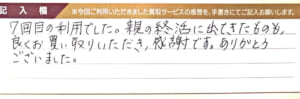 記入欄
※今回ご利用いただきました買取サービスの感想を、手書きにてご記入お願いします。
7回目の利用でした。親の終活に出てきたものも、
良くお買い取りいただき、感謝です。ありがとう
ございました。